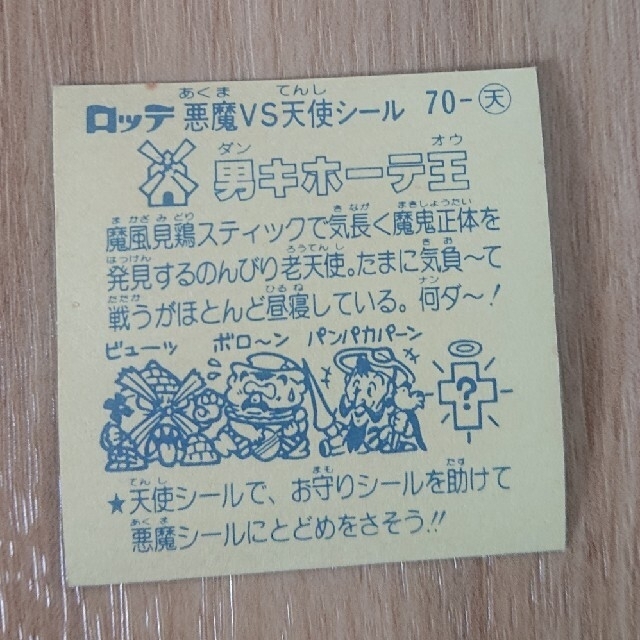 ロッテ 悪魔VS天使シール 70-天
男キホーテ王
魔風見鶏スティックで気長く魔鬼正体を
発見するのんびり老天使。たまに気負〜て
戦うがほとんど昼寝している。何ダ〜!
ビューッ ボロ〜ン パンパカパーン
?
★天使シールで、お守りシールを助けて
悪魔シールにとどめをさそう!!